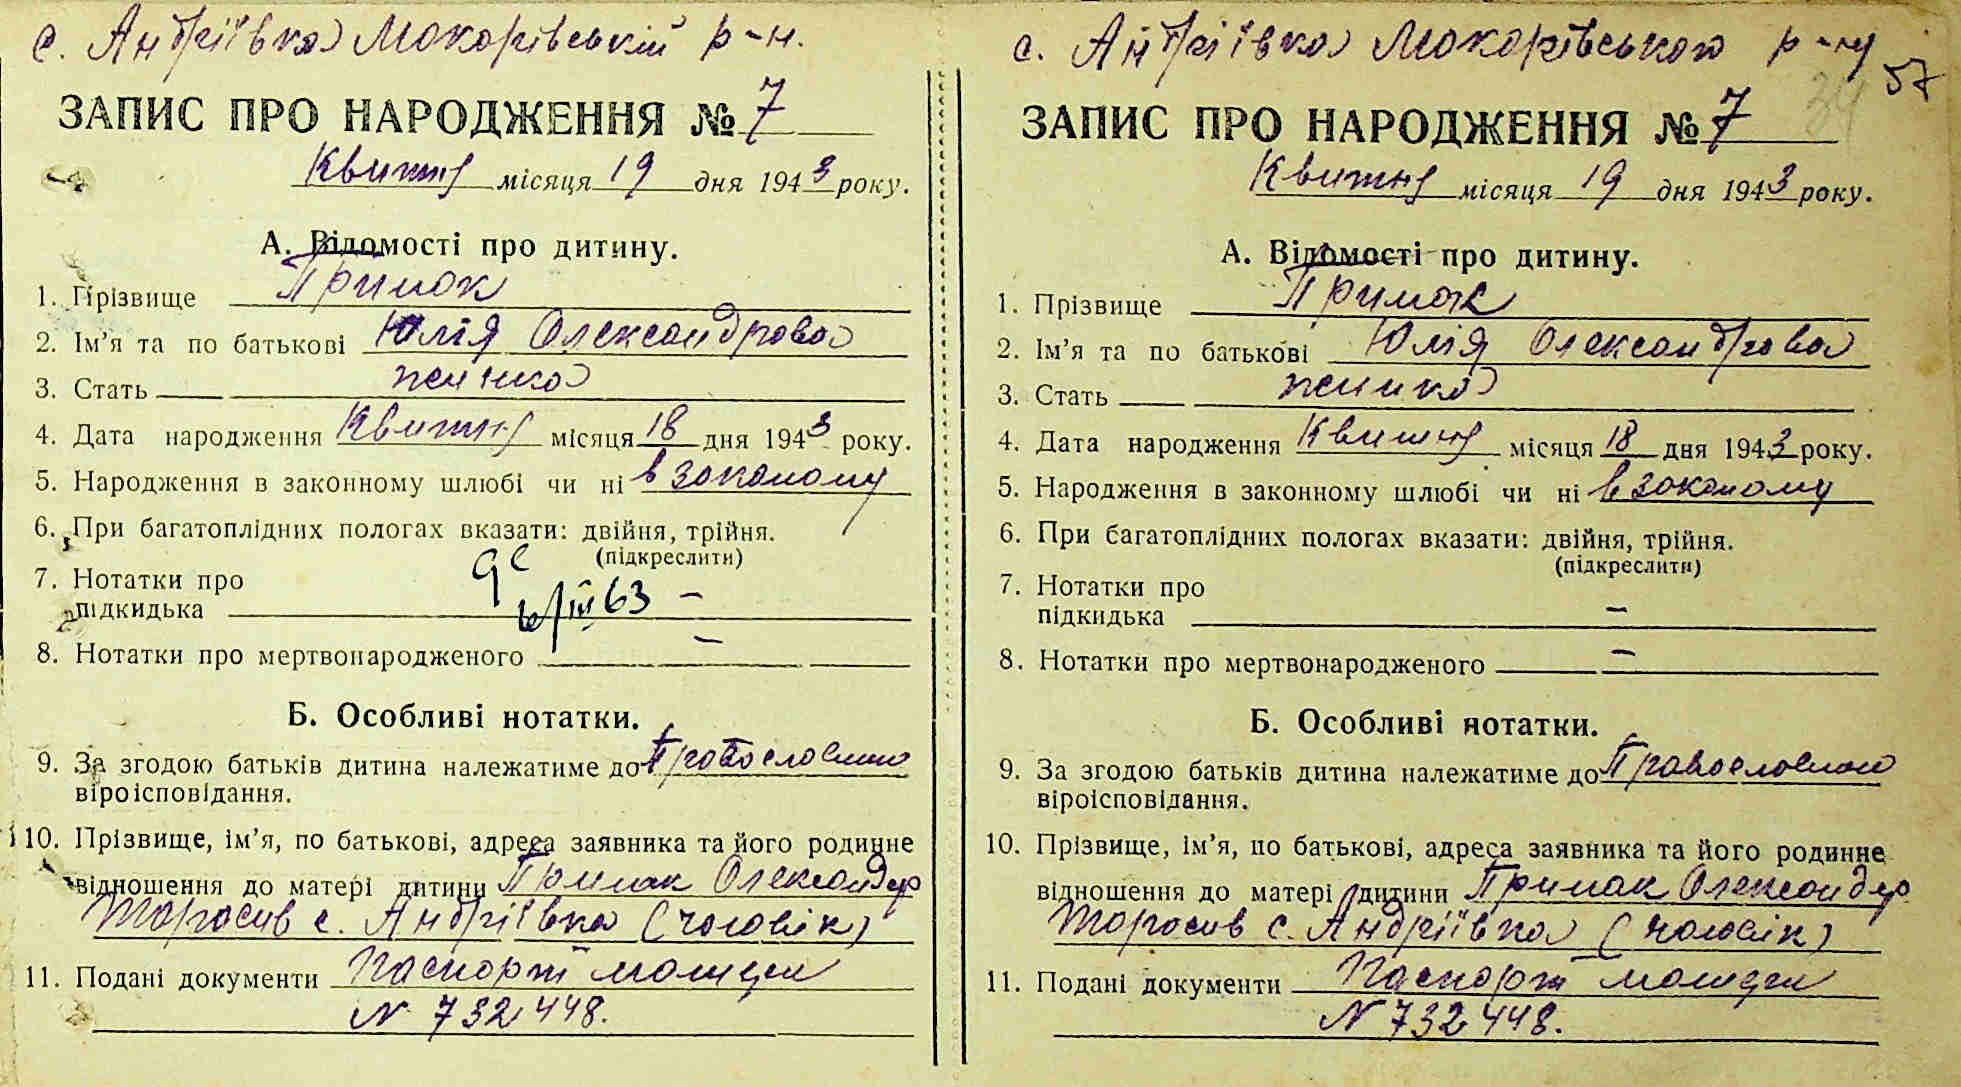 с. Андріївка Макарівській р-н.
ЗАПИС ПРО НАРОДЖЕННЯ № 7
Квитня місяця 19 дня 1943 року.
А. Відомості про дитину.
1. Прізвище Примак
2. Ім’я та по батькові Юлія Олександрова
3. Стать жінка
4. Дата народження Квитня місяця 18 дня 1943 року.
5. Народження в законному шлюбі чи ні в законому
6. При багатоплідних пологах вказати: двійня, трійня.
(підкреслити)
7. Нотатки про
підкидька –
63
8. Нотатки про мертвонародженого –
Б. Особливі нотатки.
9. За згодою батьків дитина належатиме до Православно
віроісповідання.
10. Прізвище, ім’я, по батькові, адреса заявника та його родинне
відношення до матері дитини Примак Олександр
Тарасив с. Андріївка (чоловік)
11. Подані документи Паспорт
N 732448.
с. Андріївка Макарівського р-ну
57
34
ЗАПИС ПРО НАРОДЖЕННЯ № 7
Квитня місяця 19 дня 1943 року.
А. Відомості про дитину.
1. Прізвище Примак
2. Ім’я та по батькові Юлія Олександрова
3. Стать жинка
4. Дата народження Квитня місяця 18 дня 1943 року.
5. Народження в законному шлюбі чи ні в законому
6. При багатоплідних пологах вказати: двійня, трійня.
(підкреслити)
7. Нотатки про
підкидька –
8. Нотатки про мертвонародженого –
Б. Особливі нотатки.
9. За згодою батьків дитина належатиме до Православно
віроісповідання.
10. Прізвище, ім’я, по батькові, адреса заявника та його родинне
відношення до матері дитини Примак Олександр
Тарасив с. Андріївка (чоловік)
11. Подані документи Паспорт
N 732448.